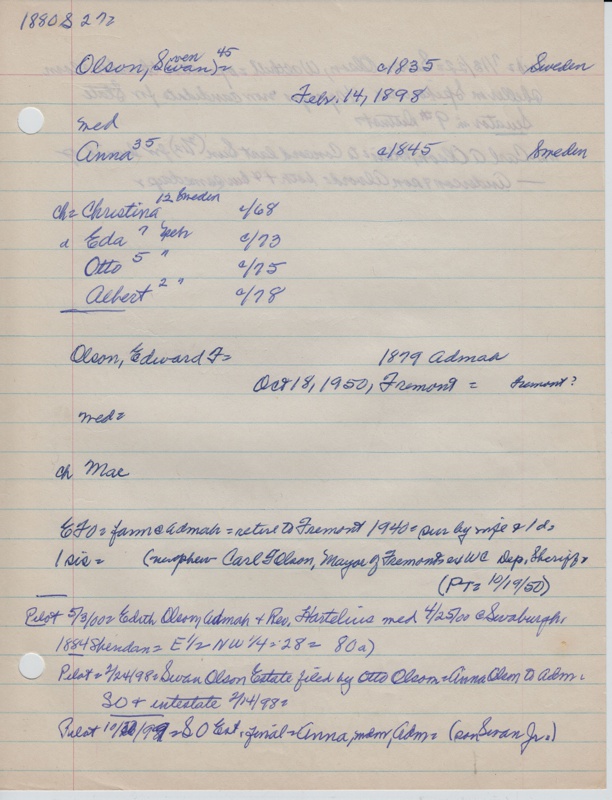 1880 S 272
Olson, S(wan)= 45 c/1835 Sweden
Feb. 14, 1898
med
Anna 35 c/1845 Sweden
ch= Christina 12 Sweden c/68
d Eda 7 c/73
Otto 5 " c/75
Albert 2 " c/78
Olson, Edward F= 1879 Admah
Oct 18, 1950, Fremont = Fremont?
med=
ch Mae
EFO= farm c Admah= retire to Fremont 1940= sur by wife & 1 d,
1 sis= (nephew Carl F Olson, Mayor of Fremont & WC Dep. Sheriff,
(PT= 10/19/50)
Pilot 5/3/00= Edith Olson, Admah + Rev. Hartelius med 4/25/00 c Swaburgh,
1884 Sheridan= E 1/2 NW 1/4= 28= 80a)
Pilot= 2/24/98= Swan Olson Estate filed by Otto Olson= Anna Olson to Adm.
SO + intestate 2/14/98=
Pilot = S O Est. final= Anna, Adm= (son Swan Jr.)